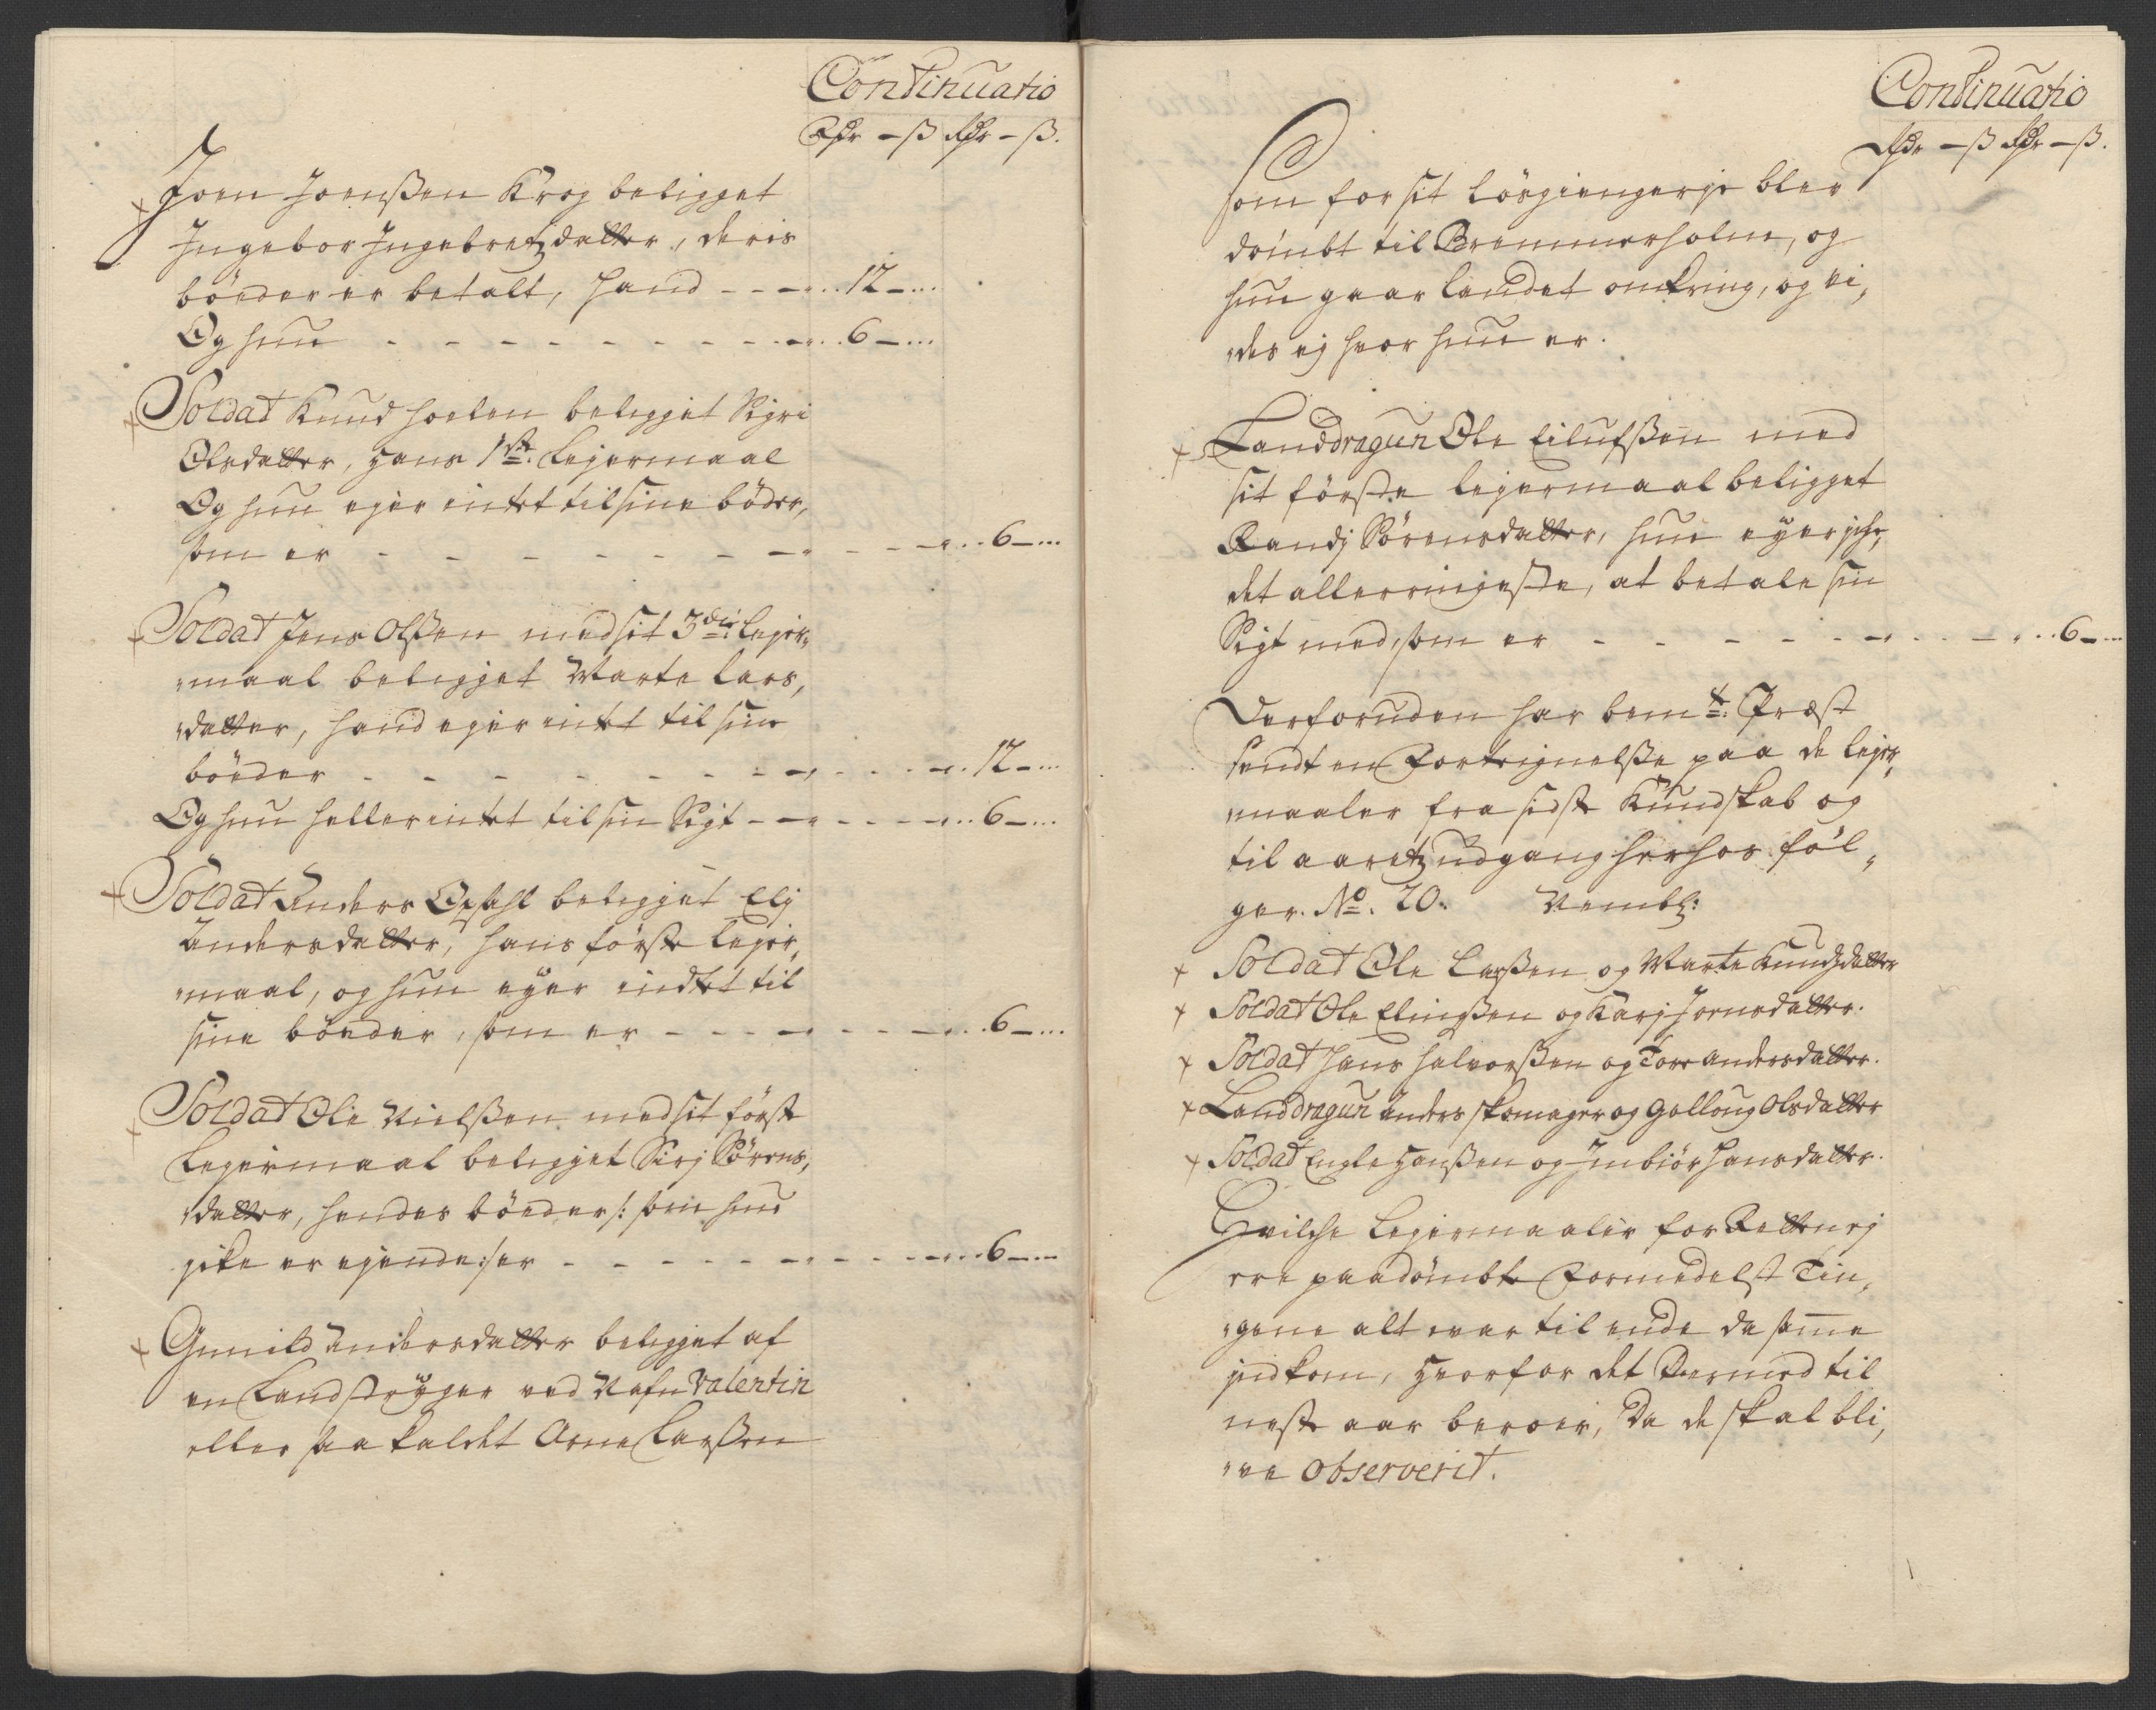 Continuatio
Rdr - ß Rdr - ß.
Joen Joenßen Krog beligget
Ingebor Ingebretzdatter, deris
böeder er betalt, hand - - - ... 12 - ...
Og hun - - - - - - - - - ... 6 - ...
Soldat Knud Hoelen beligget Sigri
Olsdatter, hans 1ste Lejermaal
Og hun ejer intet til sine böder,
som er - - - - - - - - - ... 6 - ...
Soldat Jens Olßen med sit 3die lejer„
„maal beligget Marte Lars„
„datter, hand ejer intet til sine
böeder - - - - - - - - - ... 12 - ...
Og hun heller intet til sin Sigt - - - - - ... 6 - ...
Soldat Anders Opsahl beligget Elj
Andersdatter, hans förste lejer„
„maal, og hun ejer indtet til
sine böeder, som er - - - - - - ... 6 - ...
Soldat Ole Nielßen med sit först
Lejermaal beligget Sirj Sörens„
„datter, hendes böeder /: som hun
icke er ejende :/ er - - - - - - - ... 6 - ...
Gunild Andersdatter beligget af
en Landstryger ved Nafn Valentin
eller saa kaldet Arne Larßen
Continuatio
Rdr - ß Rdr - ß.
som for sit lösgiengerje blev
dömbt til Bremmerholm, og
hun gaar landet omkring, og vi„
„des ej hvor hun er.
Landdragun Ole Eilufßen med
sit förste lejermaal beligget
Randj Sörensdatter, hun ejer iche
det allerringeste, at betale sin
Sigt med, som er - - - - - - - ... 6 - ...
Derforuden har bemte Præst
sendt en Fortegnelße paa de lejer„
„maaler fra sidste Kundskab og
til aaretz udgang herhos föl„
ger. No. 20. Nembl:
Soldat Ole Larßen og Marte Knudzdatter
Soldat Ole Elingßen og Karj Joensdatter.
Soldat Hans Halvorßen og Tore Andersdatter.
Landdragun Anders Skomager og Golloug Olsdatter
Soldat Engle Hanßen og Imbiör Hansdatter.
Hvilche Lejermaaler for Retten ej
ere paadömbte Formedelst Tin„
„gene alt var til ende da samme
indkom, hvorfor det dermed til
neste aar beroer, da de skal bli„
„ve observerit.